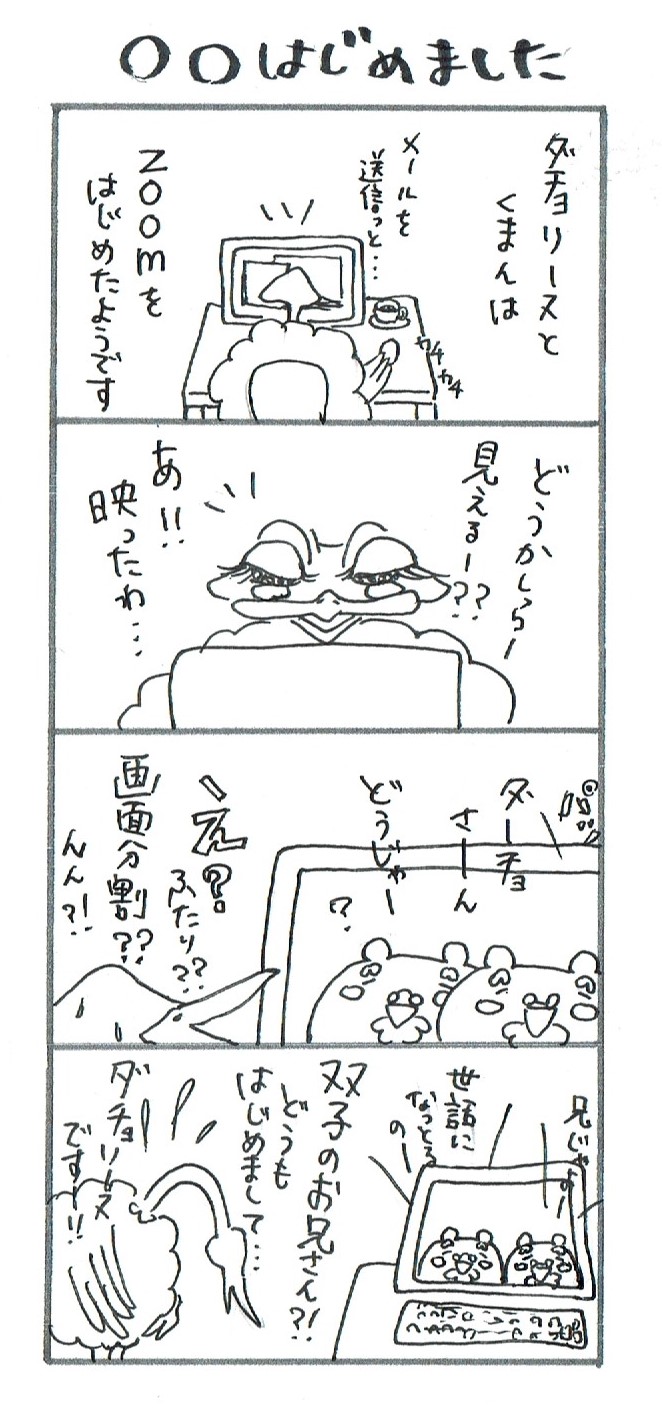 〇〇はじめました
ダチョリースと
くまんは
メールを
送信っと…
カチ
カチ
Zoomを
はじめたようです
どうかしらー
見えるー??
あ!!
映ったわ…
ダーチョ
さーん
どうじゃー
?
え?
ふたり??
画面分割??
んん?!
兄じゃよー
世話に
なっとる
のー
双子のお兄さん?!
どうも
はじめまして…
ダチョリース
ですー!!